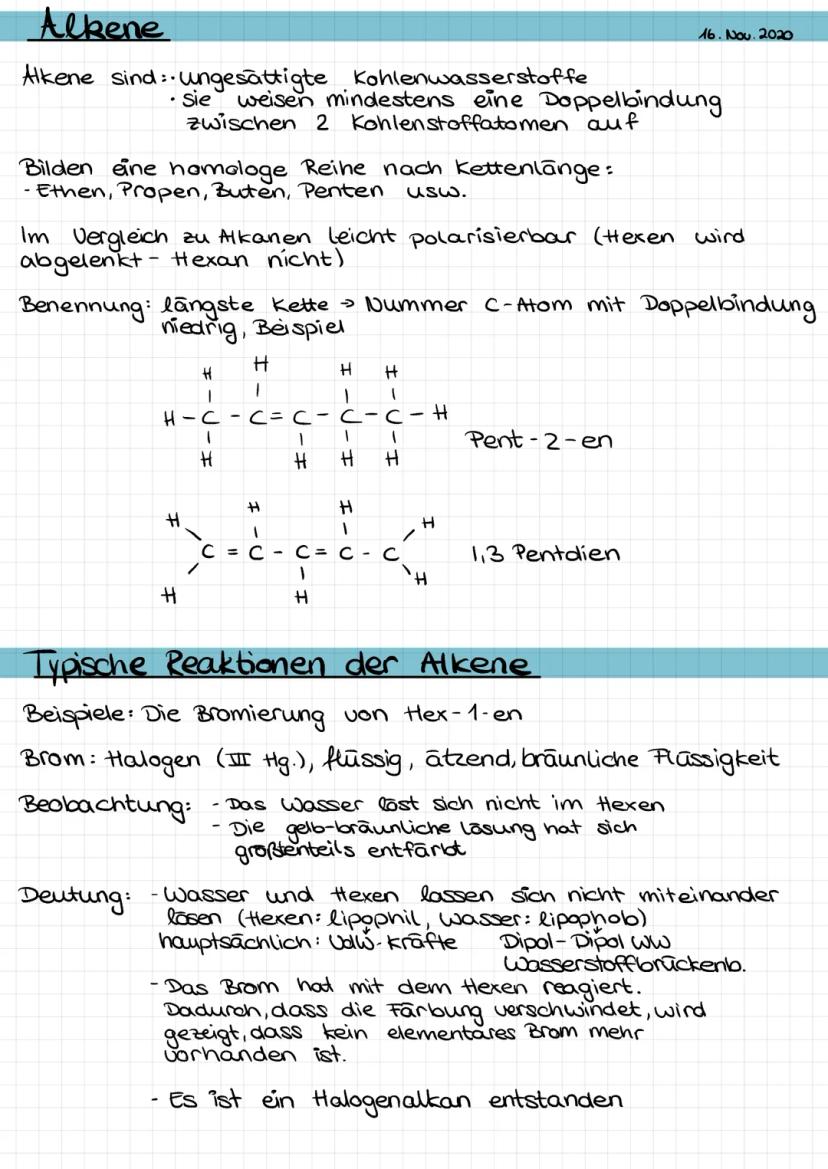 Alkene
16. Nov. 2020
Alkene sind: · ungesättigte Kohlenwasserstoffe
· sie weisen mindestens eine Doppelbindung
zwischen 2 Kohlenstoffatomen auf
Bilden eine homologe Reihe nach Kettenlänge:
- Ethen, Propen, Buten, Penten usw.
Im Vergleich zu Alkanen leicht polarisierbar (Hexen wird
abgelenkt - Hexan nicht)
Benennung: längste Kette → Nummer C-Atom mit Doppelbindung
niedrig, Beispiel
H H H H
H - C - C = C - C - C - H
H H H H
Pent - 2 - en
H H H H
C = C - C = C - C
1,3 Pentdien
H H H
Typische Reaktionen der Alkene
Beispiele: Die Bromierung von Hex-1-en
Brom: Halogen (VII Hg.), flüssig, ätzend, bräunliche Flüssigkeit
Beobachtung: - Das Wasser löst sich nicht im Hexen
- Die gelb-bräunliche Lösung hat sich
größtenteils entfärbt
Deutung: - Wasser und Hexen lassen sich nicht miteinander
lösen (Hexen: lipophil, Wasser: lipophob)
hauptsächlich: VdW-Kräfte Dipol-Dipol WW
Wasserstoffbrückenb.
- Das Brom hat mit dem Hexen reagiert.
Dadurch, dass die Färbung verschwindet, wird
gezeigt, dass kein elementares Brom mehr
vorhanden ist.
- Es ist ein Halogenalkan entstanden